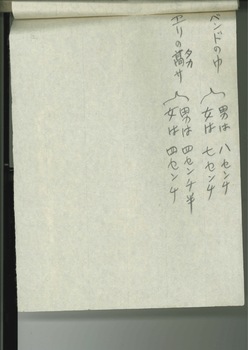 バンドの巾
男は 八センチ
女は 七センチ
エリの高サ
タカ
男は 四センチ半
女は 四センチ